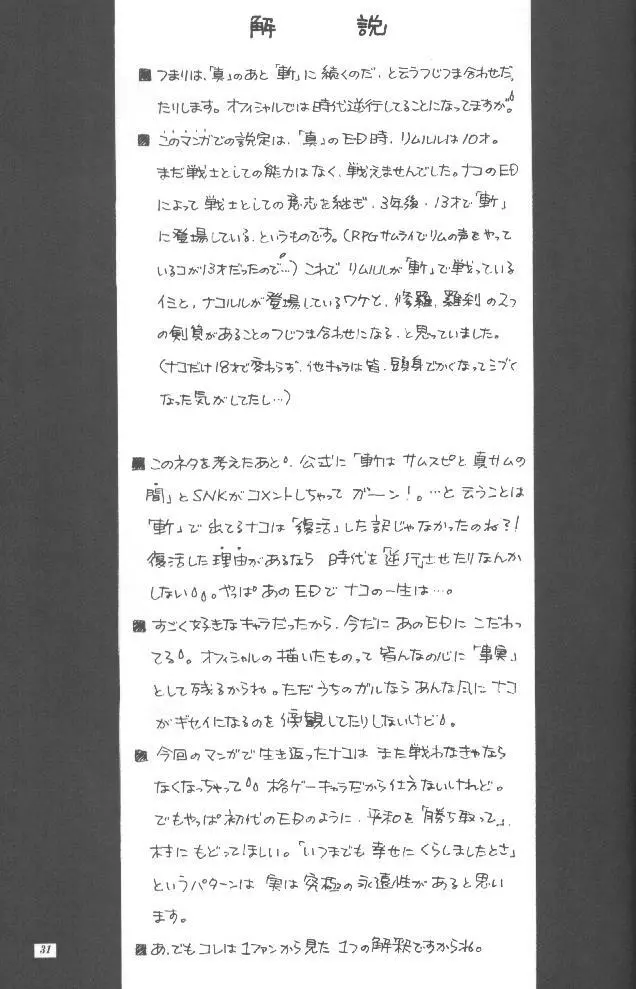 解 説
■つまりは、「真」のあと「斬」に続くのだ、と云うつじつま合わせだ
たりします。オフィシャルでは時代逆行してることになってますが。
■このマンガでの設定は、「真」のED時、リムルルは10才。
まだ戦士としての能力はなく、戦えませんでした。ナコのED
によって戦士としての意志を継ぎ、3年後・13才で「斬」
に登場している、というものです。(RPGサムライでリムの声をやって
いるコが13才だったので…)これでリムルルが「斬」で戦っている
イミと、ナコルルが登場しているワケと、修羅、羅刹の2つ
の剣質があることのつじつま合わせになる、と思っていました。
(ナコだけ18才で変わらず、他キャラは皆、頭身でかくなってシブく
なった気がしてたし…)
■このネタを考えたあと、公式に「斬はサムスピと真サムの
間」とSNKがコメントしちゃってガーン!。…と云うことは
「斬」で出てるナコは「復活」した訳じゃなかったのね?!
復活した理由があるなら時代を「逆行」させたりなんか
しない。やっぱあのEDでナコの一生は…。
■すごく好きなキャラだったから、今だにあのEDにこだわっ
てる。オフィシャルの描いたものって皆んなの心に「事実」
として残るからね。ただうちのガルならあんな風にナコ
がギセイになるのを傍観してたりしないけど。
■今回のマンガで生き返ったナコはまた戦わなきゃなら
なくなっちゃって 格ゲーキャラだから仕方ないけれど。
でもやっぱ初代のEDのように、平和を「勝ち取って」、
村にもどってほしい。「いつまでも幸せにくらしましたとさ」
というパターンは実は究極の永遠性があると思い
ます。
■あ、でもコレは1ファンから見た1つの解釈ですからね。
31